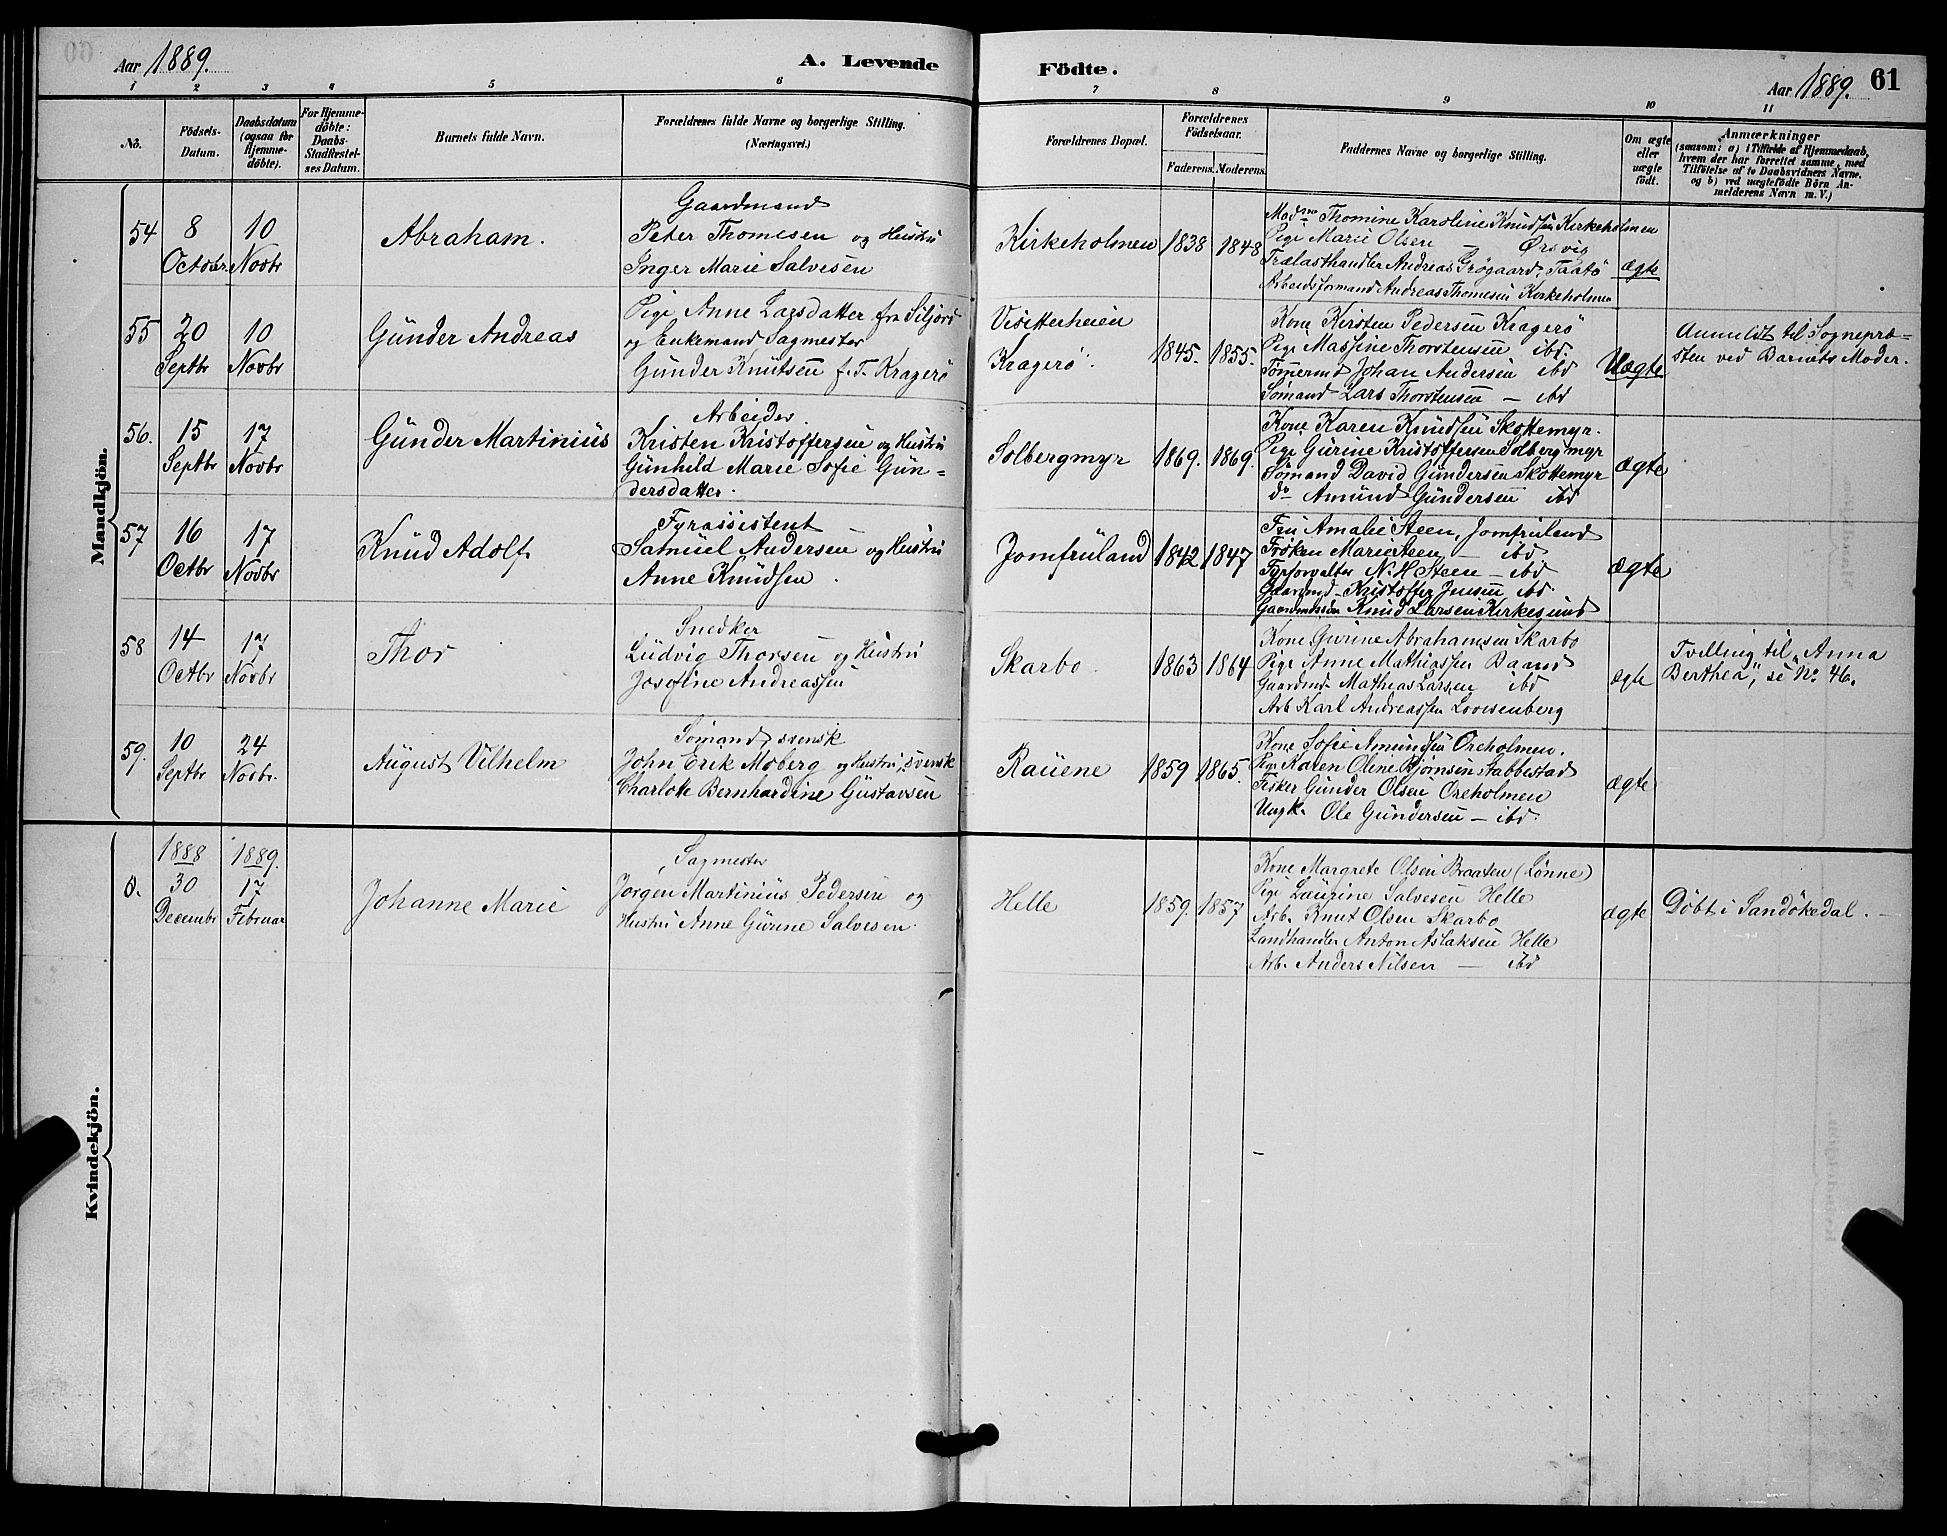 Aar 1889. A. Levende Födte. Aar 1889. 61
1 2 3 4 5 6 7 8 9 10 11
No.
Födsels-
Datum.
Daabsdatum
(ogsaa for
Hjemme-
döbte).
For Hjemme-
döbte:
Daabs-
Stadfæstel-
ses Datum.
Barnets fulde Navn.
Forældrenes fulde Navne og borgerlige Stilling.
(Næringsvei.)
Forældrenes Bopæl.
Forældrenes
Födselsaar.
Faderens. Moderens.
Faddernes Navne og borgerlige Stilling.
Om ægte
eller
uægte
födt.
Anmærkninger
(saasom: a) i Tilfælde af Hjemmedaab,
hvem der har forrettet samme, med
Tilföielse af to Daabsvidners Navne.
og b) ved uægtefödte Börn An-
melderens Navn m. V.)
Mandkjön.
54
8
October
10
Novbr
Abraham.
Gaardmand
Peter Thomesen og Hustru
Inger Marie Salvesen
Kirkeholmen
1838
1848
Madme Thomine Karoline Knudsen Kirkeholmen
Pige Marie Olsen — Ørsvig
Trælasthandler Andreas Grøgaard, Taatø
Arbeidsformand Andreas Thomesen Kirkeholmen
ægte
55
20
Septbr
10
Novbr
Gunder Andreas
Pige Anne Larsdatter fra Siljord
og Enkemand Sagmester
Gunder Knutsen f. T. Kragerø
Visitterheien
Kragerø.
1845.
1855.
Kone Kirsten Pedersen Kragerø
Pige Massine Thorstensen ibd.
Tømermd Johan Andersen ibd
Sømand Lars Thorstensen — ibd
Uægte
Anmeldt til Sognepræ-
sten ved Barnets Moder.
56.
15
Septbr
17
Novbr
Gunder Martinius
Arbeider
Kristen Kristoffersen og Hustru
Gunhild Marie Sofie Gun-
dersdatter.
Solbergmyr
1869.
1869.
Kone Karen Knudsen Skottemyr.
Pige Gurine Kristoffersen Solbergmyr
Sømand David Gundersen Skottemyr
do Amund Gundersen ibd
ægte
57
16
Octbr
17
Novbr
Knud Adolf
Fyrassistent
Samuel Andersen og Hustru
Anne Knudsen.
Jomfruland
1842
1847
Fru Amalie Steen, Jomfruland
Frøken Marie Steen — ibd
Fyrforvalter N. H Steen — ibd
Gaardmd Kristoffer Jensen ibd
Gaardmandssøn Knud Larsen Kirkesund
ægte
58
14
Octbr
17
Novbr
Thor
Snedker
Ludvig Thorsen og Hustru
Josefine Andreassen
Skarbo.
1863
1864
Kone Gurine Abrahamsen Skarbo
Pige Anne Mathiassen Baand
Gaardmd Mathias Larsen ibd
Arb. Karl Andreassen Lovisenberg
ægte
Tvilling til "Anna
Berthea", se No. 46.
59.
10
Septbr
24
Novbr.
August Vilhelm
Sømand, svensk
John Erik Moberg og Hustru, svensk
Charlotte Bernhardine Gustavsen
Rauene
1859
1865.
Kone Sofie Amundsen Oreholmen.
Pige Karen Oline Bjørnsen Stabbestad
Fisker Gunder Olsen Oreholmen
Ungk. Ole Gundersen — ibd.
ægte
Kvindekjön.
0.
1888
30
Decembr
1889.
17
Februar
Johanne Marie
Sagmester
Jørgen Martinius Pedersen og
Hustru Anne Gurine Salvesen.
Helle
1859.
1857
Kone Margrete Olsen Braaten (Lønne)
Pige Laurine Salvesen Helle
Arb. Knut Olsen Skarbo
Landhandler Anton Aslaksen Helle
Arb. Anders Nilsen — ibd
ægte
Døbt i Sandøkedal.